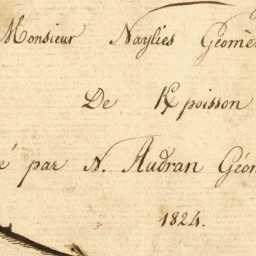 Monsieur Naylies Géomè
De poisson
é par N. Audran Géom
1824.